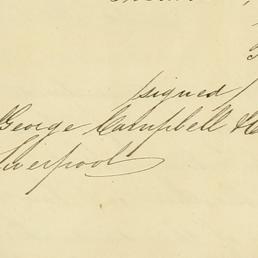 (signed)
George Campbell &
Liverpool